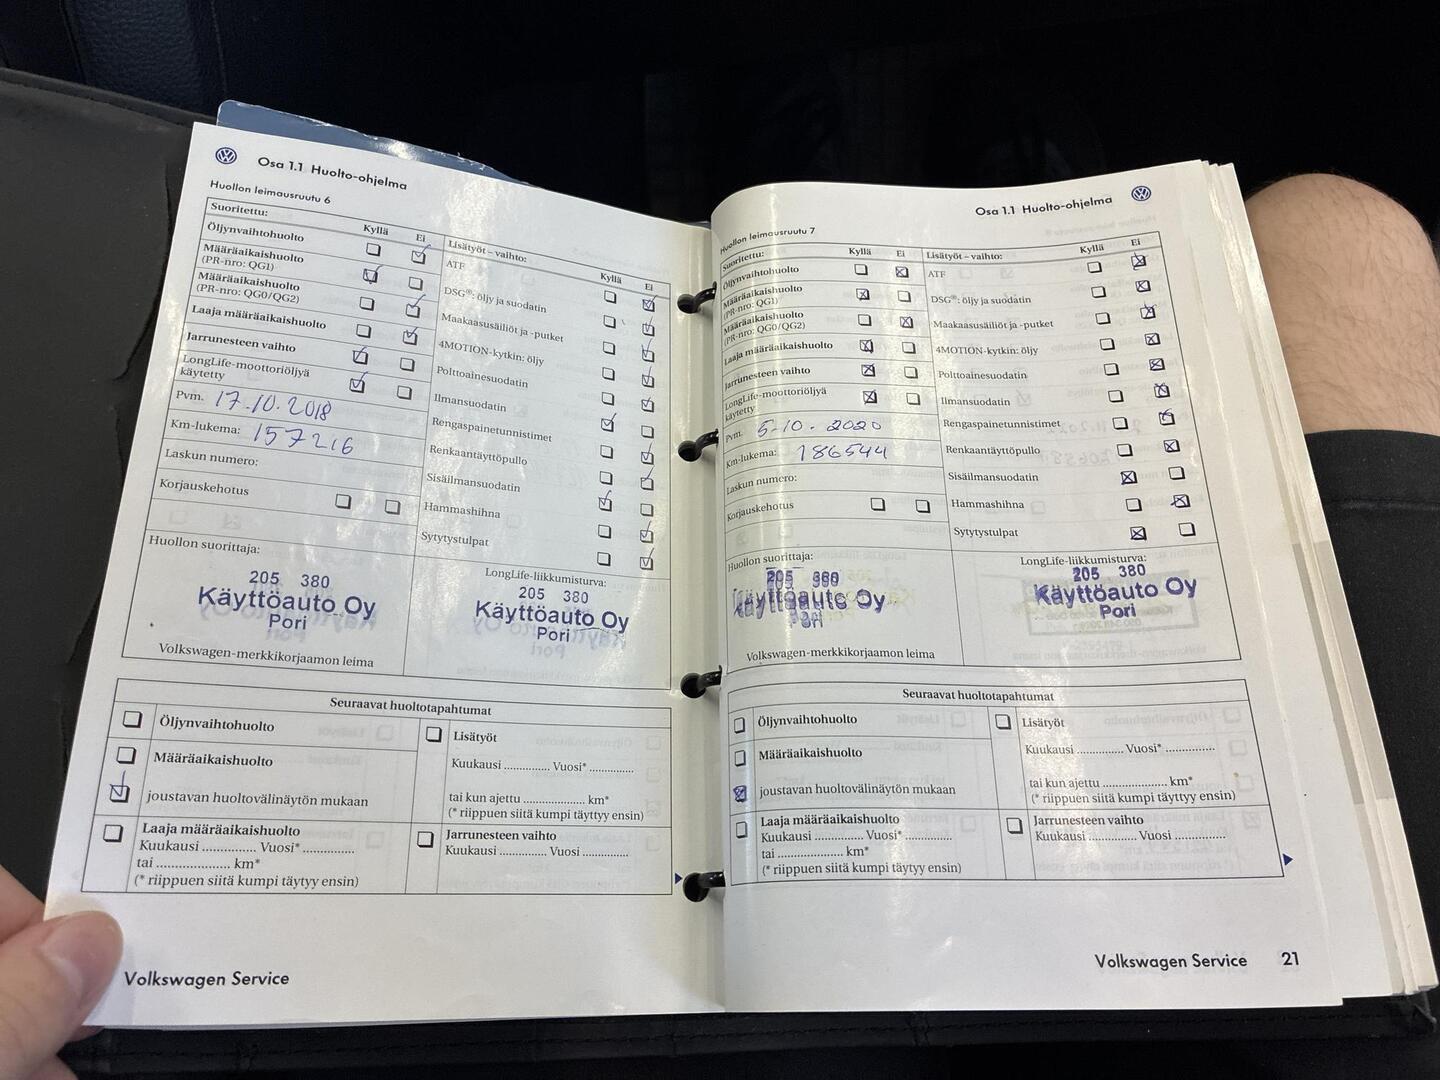 Osa 1.1 Huolto-ohjelma
Huollon leimausruutu 6
Suoritettu:
Kyllä Ei
Öljynvaihtohuolto
Määräaikaishuolto
(PR-nro: QG1)
Määräaikaishuolto
(PR-nro: QG0/QG2)
Laaja määräaikaishuolto
Jarrunesteen vaihto
LongLife-moottoriöljyä
käytetty
Pvm. 17.10.2018
Km-lukema: 157216
Laskun numero:
Korjauskehotus
Lisätyöt – vaihto:
Kyllä Ei
ATF
DSG®: öljy ja suodatin
Maakaasusäiliöt ja -putket
4MOTION-kytkin: öljy
Polttoainesuodatin
Ilmansuodatin
Rengaspainetunnistimet
Renkaantäyttöpullo
Sisäilmansuodatin
Hammashihna
Sytytystulpat
Huollon suorittaja:
205 380
Käyttöauto Oy
Pori
Volkswagen-merkkikorjaamon leima
LongLife-liikkumisturva:
205 380
Käyttöauto Oy
Pori
Seuraavat huoltotapahtumat
Öljynvaihtohuolto
Määräaikaishuolto
joustavan huoltovälinäytön mukaan
Lisätyöt
Kuukausi .............. Vuosi* ..............
tai kun ajettu ................... km*
(* riippuen siitä kumpi täyttyy ensin)
Laaja määräaikaishuolto
Kuukausi .............. Vuosi* ..............
tai .................... km*
(* riippuen siitä kumpi täytyy ensin)
Jarrunesteen vaihto
Kuukausi .............. Vuosi ..............
Volkswagen Service
Osa 1.1 Huolto-ohjelma
Huollon leimausruutu 7
Suoritettu:
Kyllä Ei
Öljynvaihtohuolto
Määräaikaishuolto
(PR-nro: QG1)
Määräaikaishuolto
(PR-nro: QG0/QG2)
Laaja määräaikaishuolto
Jarrunesteen vaihto
LongLife-moottoriöljyä
käytetty
Pvm. 5-10. 2020
Km-lukema: 186544
Laskun numero:
Korjauskehotus
Lisätyöt – vaihto:
Kyllä Ei
ATF
DSG®: öljy ja suodatin
Maakaasusäiliöt ja -putket
4MOTION-kytkin: öljy
Polttoainesuodatin
Ilmansuodatin
Rengaspainetunnistimet
Renkaantäyttöpullo
Sisäilmansuodatin
Hammashihna
Sytytystulpat
Huollon suorittaja:
205 380
Käyttöauto Oy
Pori
Volkswagen-merkkikorjaamon leima
LongLife-liikkumisturva:
205 380
Käyttöauto Oy
Pori
Seuraavat huoltotapahtumat
Öljynvaihtohuolto
Määräaikaishuolto
joustavan huoltovälinäytön mukaan
Lisätyöt
Kuukausi .............. Vuosi* ..............
tai kun ajettu ................... km*
(* riippuen siitä kumpi täyttyy ensin)
Laaja määräaikaishuolto
Kuukausi .............. Vuosi* ..............
tai .................... km*
(* riippuen siitä kumpi täytyy ensin)
Jarrunesteen vaihto
Kuukausi .............. Vuosi ..............
Volkswagen Service 21